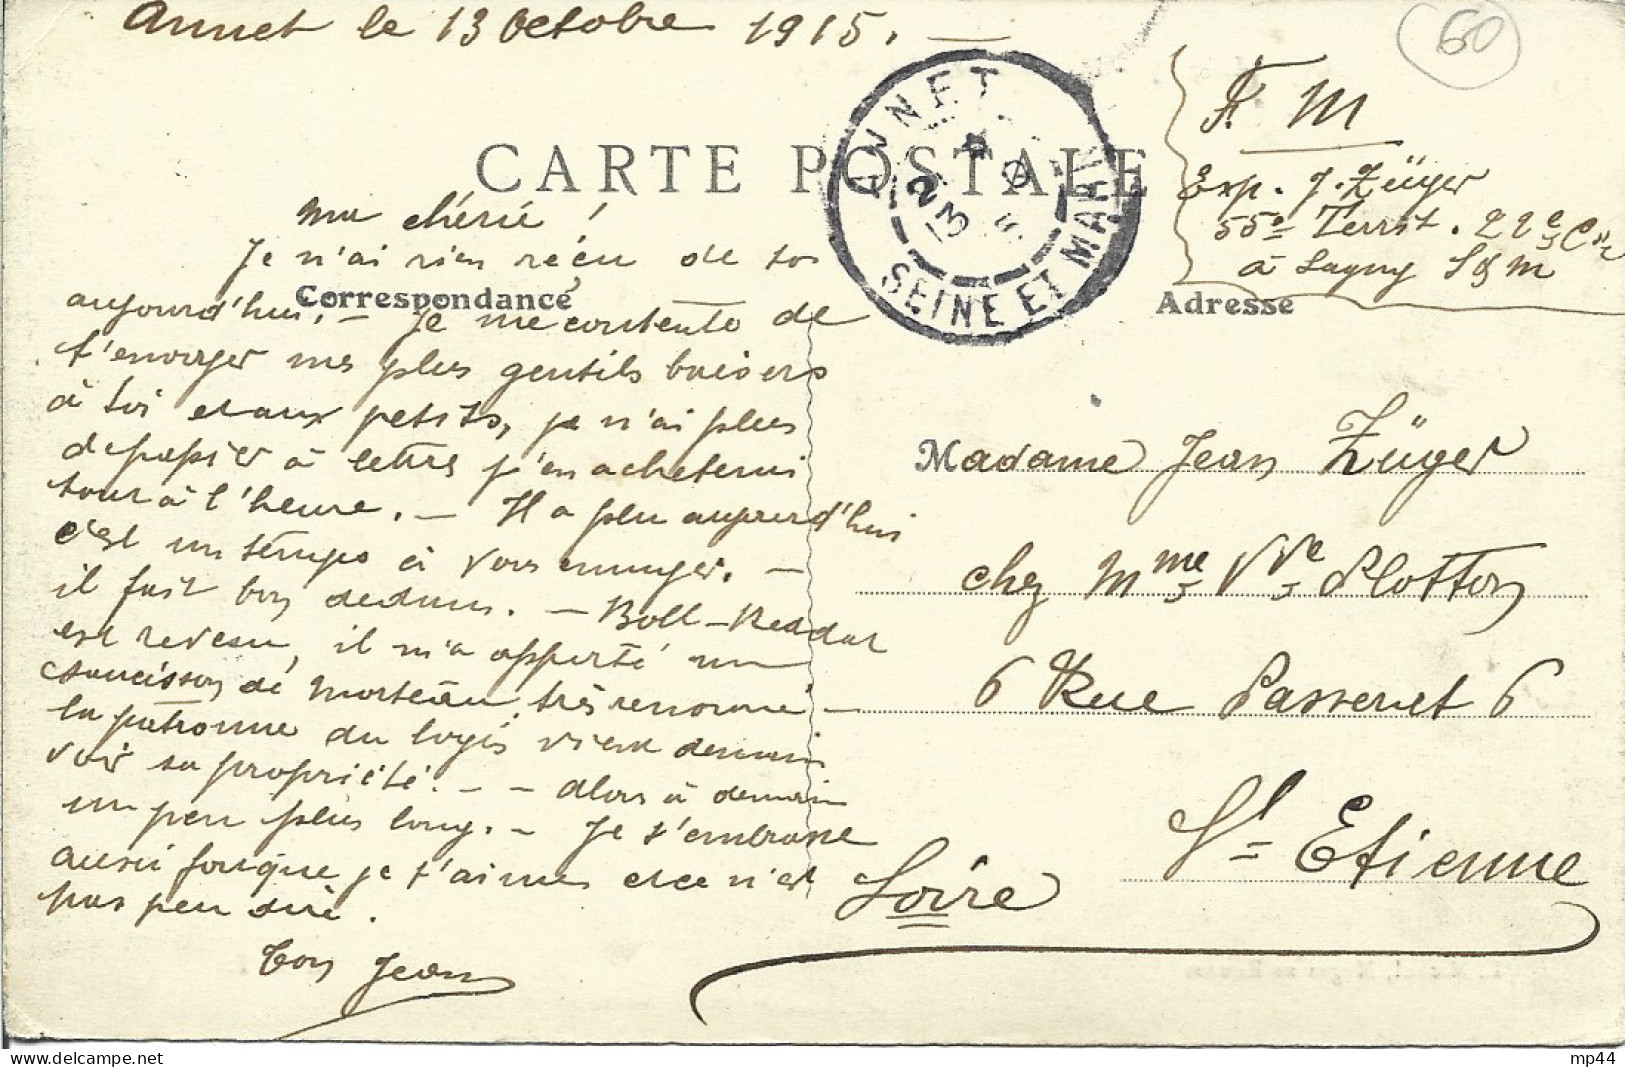 Annet le 13 Octobre 1915. —
60
F. M
CARTE POSTALE
ANNET
SEINE ET MARNE
Exp. J. Züger
55e Territ. 22e Cie
à Lagny S & M
Ma chérie !
Je n'ai rien reçu de toi
Correspondance
Adresse
aujourd'hui, – Je me contente de
t'envoyer mes plus gentils baisers
à toi et aux petits, je n'ai plus
de papier à lettres j'en acheterai
tour à l'heure. – Il a plu aujourd'hui
c'est un temps à vous ennuyer. –
il fait bon dedans. – Boll-Reddat
est revenu, il m'a apporté un
saucisson de Morteau, très renommé –
la patronne du logis vient demain
voir sa propriété. – – alors à demain
un peu plus long. – Je t'embrasse
aussi fort que je t'aime et ce n'est
pas peu dire.
Ton Jean
Madame Jean Züger
chez Mme Vve Plotton
6 Rue Passerat 6
St Etienne
Loire
www.delcampe.net
mp44